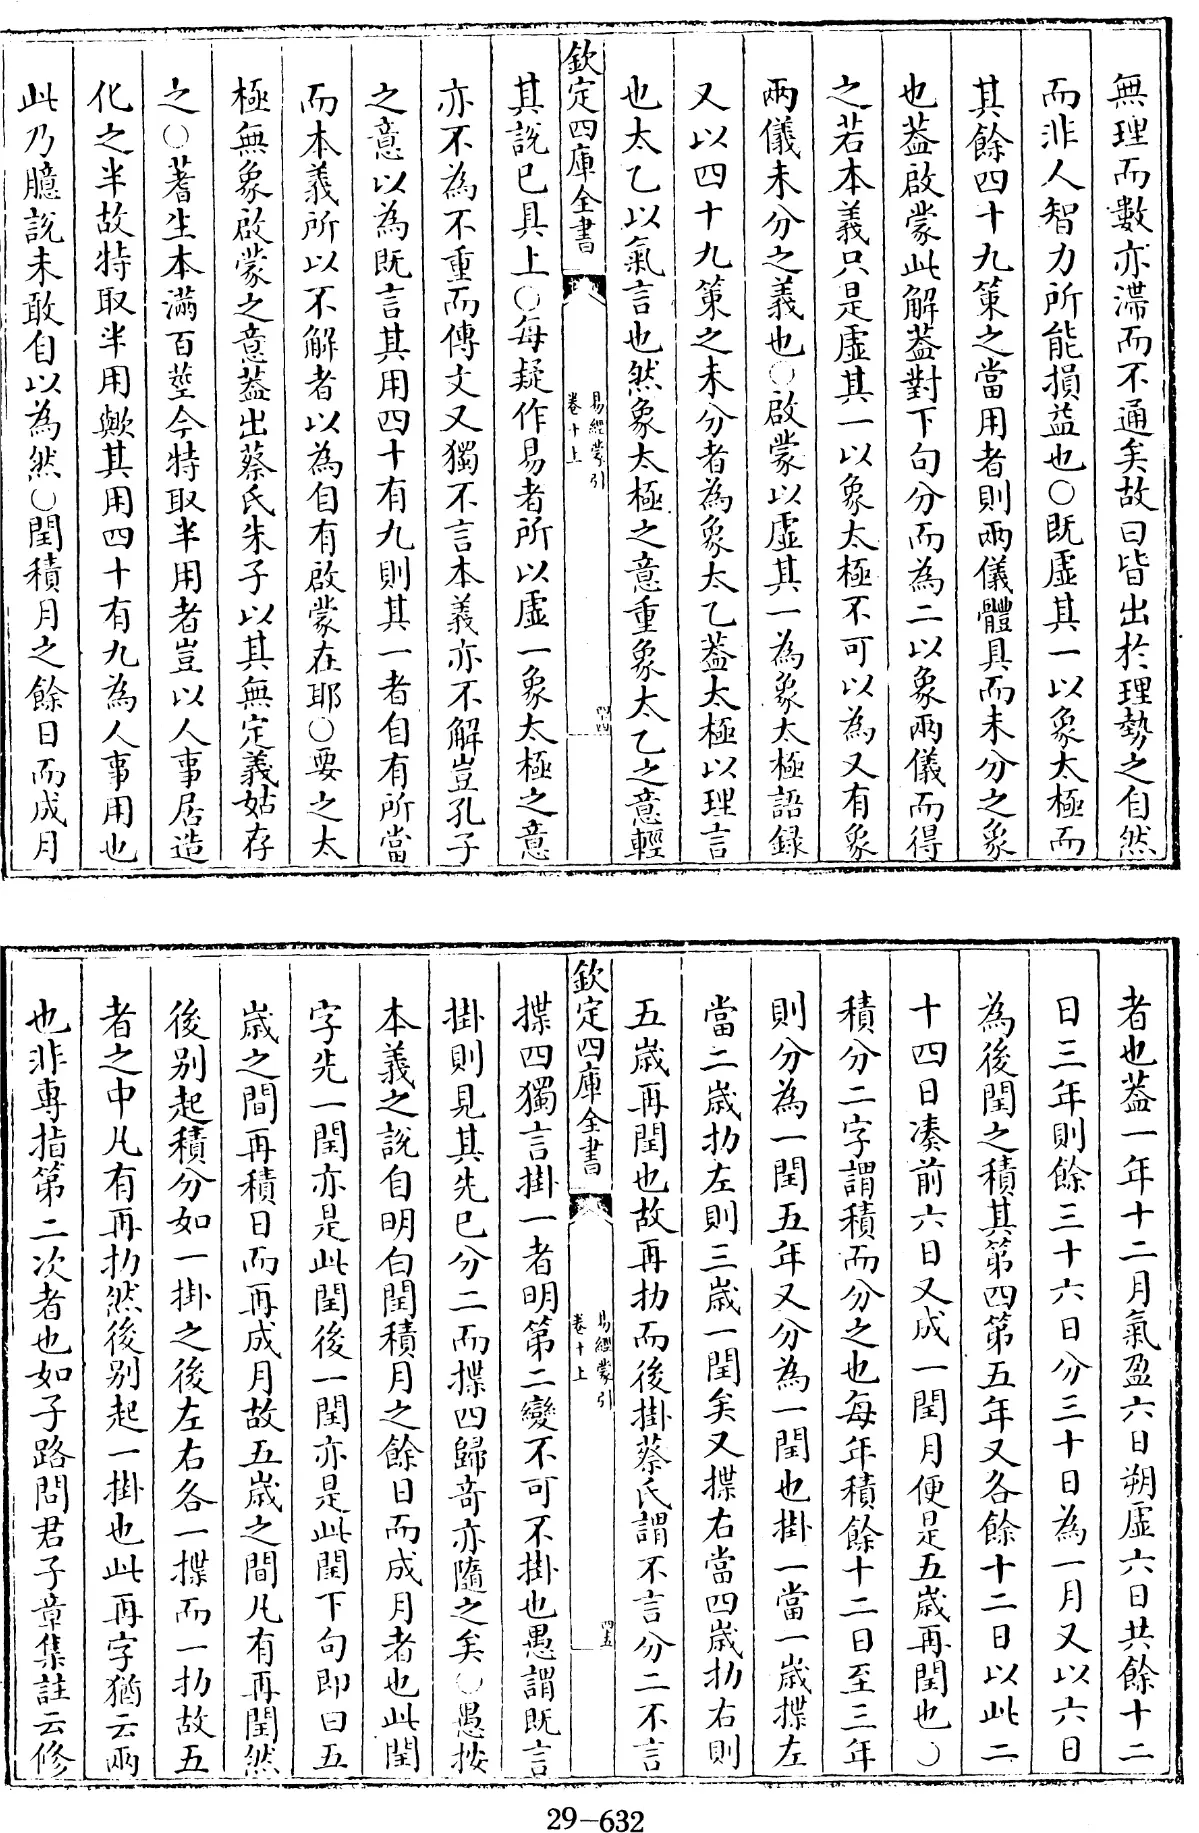 無理而數亦滯而不通矣故曰皆出於理勢之自然
而非人智力所能損益也○既虛其一以象太極而
其餘四十九策之當用者則兩儀體具而未分之象
也葢啟蒙此解葢對下句分而為二以象兩儀而得
之若本義只是虛其一以象太極不可以為又有象
兩儀未分之義也○啟蒙以虛其一為象太極語録
又以四十九策之未分者為象太乙葢太極以理言
也太乙以氣言也然象太極之意重象太乙之意輕
欽定四庫全書
易經蒙引
卷十上
四四
其說已具上○每疑作易者所以虛一象太極之意
亦不為不重而傳文又獨不言本義亦不解豈孔子
之意以為既言其用四十有九則其一者自有所當
而本義所以不解者以為自有啟蒙在耶○要之太
極無象啟蒙之意葢出蔡氏朱子以其無定義姑存
之○蓍生本滿百莖今特取半用者豈以人事居造
化之半故特取半用歟其用四十有九為人事用也
此乃臆說未敢自以為然○閏積月之餘日而成月
者也葢一年十二月氣盈六日朔虛六日共餘十二
日三年則餘三十六日分三十日為一月又以六日
為後閏之積其第四第五年又各餘十二日以此二
十四日湊前六日又成一閏月便是五歲再閏也○
積分二字謂積而分之也每年積餘十二日至三年
則分為一閏五年又分為一閏也掛一當一歲揲左
當二歲扐左則三歲一閏矣又揲右當四歲扐右則
五歲再閏也故再扐而後掛蔡氏謂不言分二不言
欽定四庫全書
易經蒙引
卷十上
四五
揲四獨言掛一者明第二變不可不掛也愚謂既言
掛則見其先已分二而揲四歸奇亦隨之矣○愚按
本義之說自明白閏積月之餘日而成月者也此閏
字先一閏亦是此閏後一閏亦是此閏下句即曰五
歲之間再積日而再成月故五歲之間凡有再閏然
後别起積分如一掛之後左右各一揲而一扐故五
者之中凡有再扐然後别起一掛也此再字猶云兩
也非專指第二次者也如子路問君子章集註云修
29-632